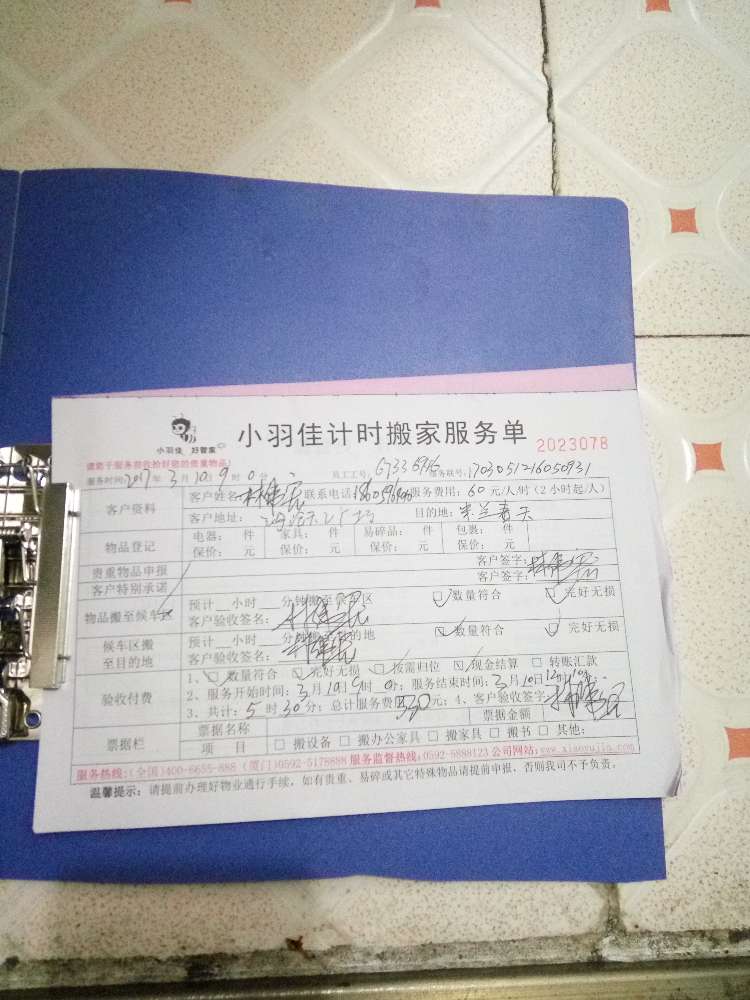 小羽佳 好管家
小羽佳计时搬家服务单 2023078
请您于服务前收拾好您的贵重物品!
服务时间2017年3月10日9时0分 员工工号: 服务联号:1703051216050931
客户资料
客户姓名: 联系电话: 服务费用:60元/人/时(2小时起/人)
客户地址: 目的地:米兰春天
物品登记
电器: 件 家具: 件 易碎品: 件 包裹: 件
保价: 元 保价: 元 保价: 元 保价: 元
贵重物品申报 客户签字:
客户特别承诺 客户签字:
物品搬至候车区
预计__小时__分钟搬至候车区 数量符合 完好无损
客户验收签名:
候车区搬至目的地
预计__小时__分钟搬至目的地 数量符合 完好无损
客户验收签名:
验收付费
1、数量符合 完好无损 按需归位 现金结算 转账汇款
2、服务开始时间:3月10日9时0分;服务结束时间:3月10日
3、共计:5时30分;总计服务费 元;4、客户验收签字
票据栏
票据名称 票据金额
项目 搬设备 搬办公家具 搬家具 搬书 其他:
服务热线:(全国)400-6655-888 (厦门)0592-5178888 服务监督热线:0592-5888123 公司网站:www.xiaoyujia.com
温馨提示:请提前办理好物业通行手续,如有贵重、易碎或其它特殊物品请提前申报,否则我司不予负责。